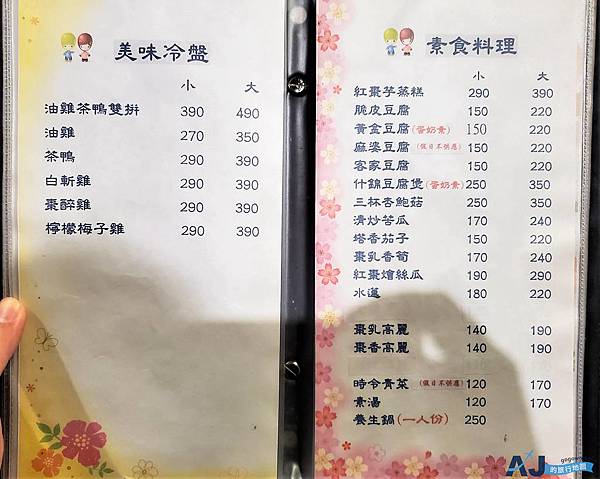 美味冷盤
小 大
油雞茶鴨雙拚 390 490
油雞 270 350
茶鴨 290 390
白斬雞 290 390
棗醉雞 290 390
檸檬梅子雞 290 390
素食料理
小 大
紅棗芋蒸糕 290 390
脆皮豆腐 150 220
黃金豆腐(蛋奶素) 150 220
麻婆豆腐(假日不供應) 150 220
客家豆腐 150 220
什錦豆腐煲(蛋奶素) 250 350
三杯杏鮑菇 250 350
清炒苦瓜 170 240
塔香茄子 150 220
棗乳香筍 170 240
紅棗燴絲瓜 190 290
水蓮 180 220
棗乳高麗 140 190
棗香高麗 140 190
時令青菜(假日不供應) 120 170
素湯 120 170
養生鍋(一人份) 250
gogogo
AJ的旅行地圖